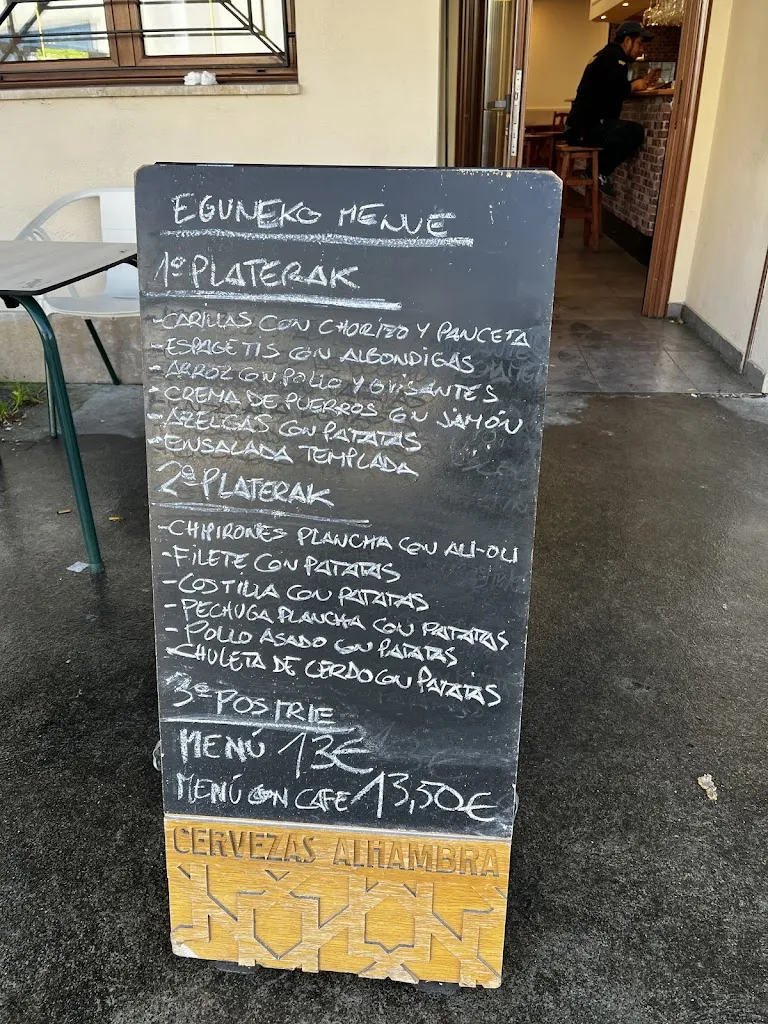 EGUNEKO MENUE
1º PLATERAK
-CARILLAS CON CHORIZO Y PANCETA
-ESPAGETIS CON ALBONDIGAS
-ARROZ CON POLLO Y GUISANTES
-CREMA DE PUERROS CON JAMÓN
-AZELGAS CON PATATAS
-ENSALADA TEMPLADA
2º PLATERAK
-CHIPIRONES PLANCHA CON ALI-OLI
-FILETE CON PATATAS
-COSTILLA CON PATATAS
-PECHUGA PLANCHA CON PATATAS
-POLLO ASADO CON PATATAS
-CHULETA DE CERDO CON PATATAS
3º POSTRE
MENÚ 13€
MENÚ CON CAFE 13,50€
CERVEZAS ALHAMBRA